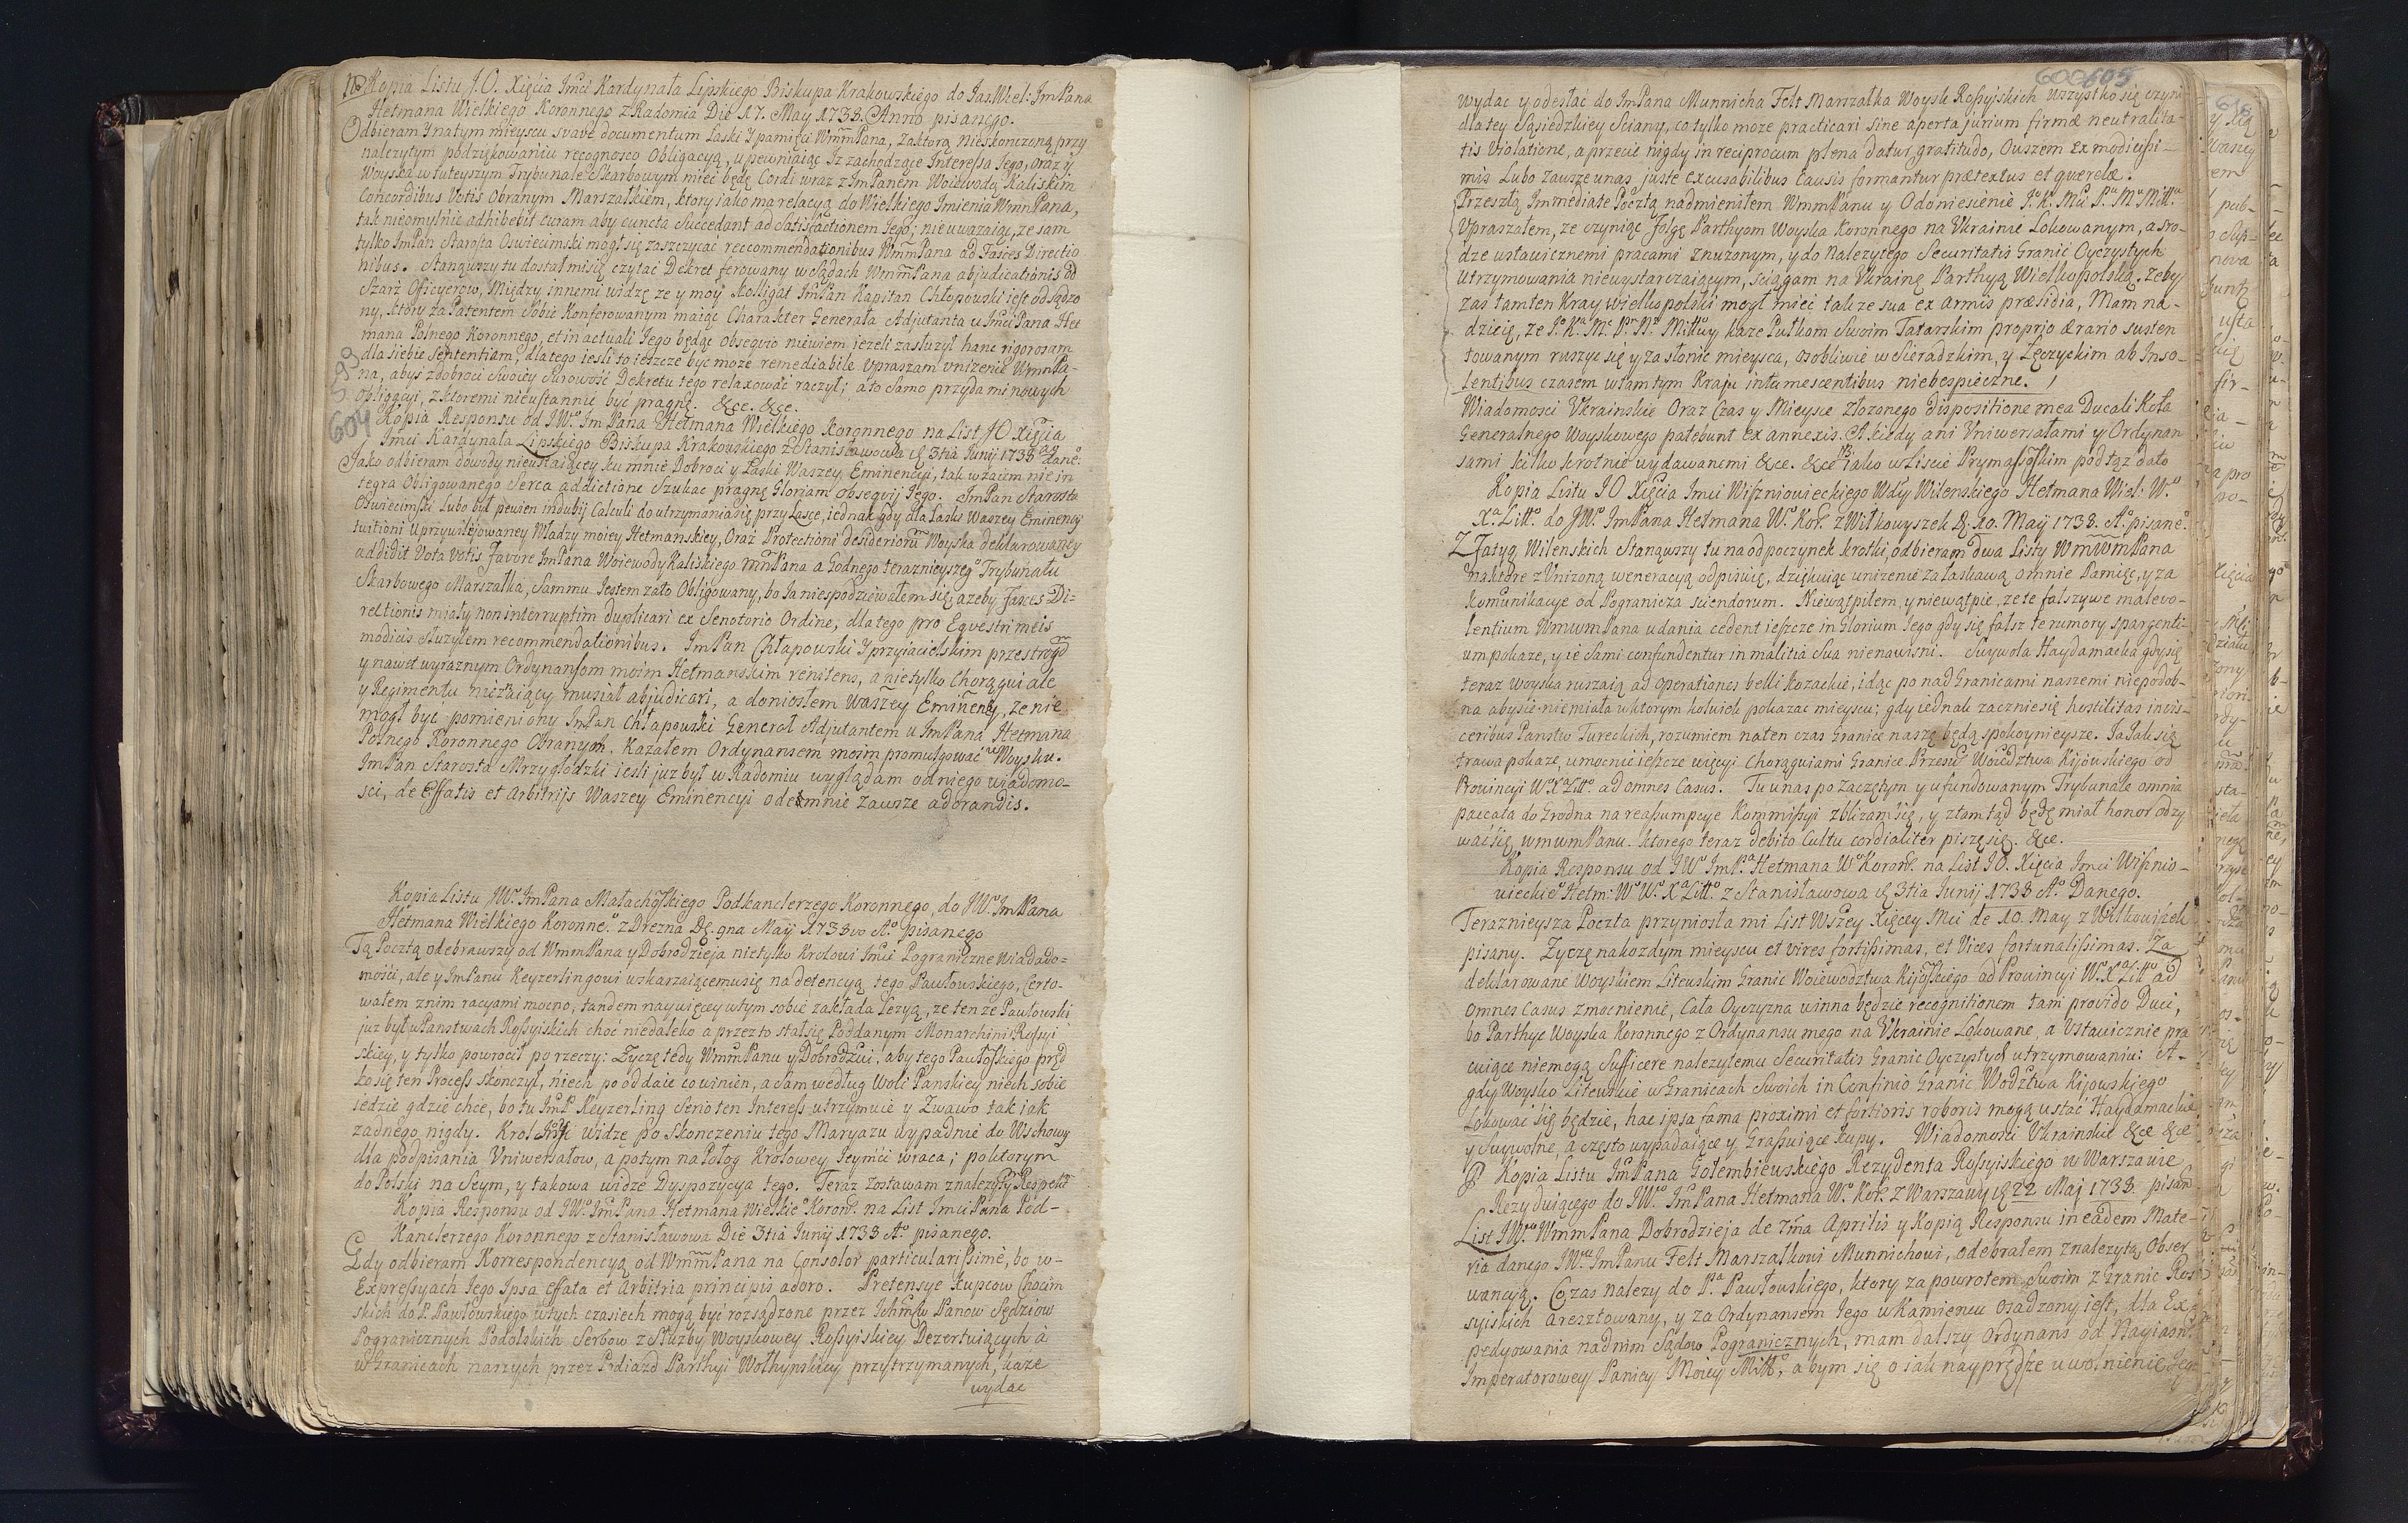 NB Kopia Listu J.O. Xięcia Imći Kardynała Lipskiego Biskupa Krakowskiego do Jas. Wiel: ImPana
Hetmana Wielkiego Koronnego z Radomia Die 17. May 1738. Anno pisanego.
Odbieram y na tym mieyscu svave documentum Łaski y pamięci WmmPana, za ktorą nieskonczoną przy
nalezytym podziękowaniu recognosco Obligacyą, upewniaiąc Iz zachodzące Interessa Jego, oraz y
Woyska w tuteyszym Trybunale Skarbowym mieć będę Cordi wraz z ImPanem Woiewodą Kaliskim
Concordibus Votis Obranym Marszałkiem, ktory iako ma relacyą do Wielkiego Imienia WmmPana,
tak nieomylnie adhibebit curam aby cuncta Succedant ad Satisfactionem Jego; nie uwazaiąc, ze sam
tylko ImPan Starosta Oswiecimski mogł się zaszczycać reccommendationibus WmmPana ad Fasces Directio
nibus. Stanąwszy tu dostał mi się czytać Dekret ferowany w Sądach WmmPana abjudicationis od
Szarż Oficyerow, Między innemi widzę ze y moy Kolligat ImPan Kapitan Chłopowski iest odsądzo
ny, ktory za Patentem Sobie Konferowanym maiąc Charakter Generała Adjutanta u Imci Pana Het
mana Polnego Koronnego, et in actuali Jego będąc obsequio niewiem jezeli zasłuzył hanc rigorosam
dla siebie Sententiam, dlatego iesli to ieszcze być moze remediabile Upraszam unizenie WmmPa-
na, abyś z dobroci Swoiey Surowość Dekretu tego relaxować raczył; a to Samo przyda mi nowych
Obligacyi, z ktoremi nieustannie być pragnę. &ce. &ce.
593
604
Kopia Responsu od JWo. Im Pana Hetmana Wielkiego Koronnego na List JO Xięcia
Imci Kardynała Lipskiego Biskupa Krakowskiego z Stanisławowa D. 3tia Junij 1738
Jako odbieram dowody nieustaiącey ku mnie Dobroci y Łaski Waszey Eminencyi, tak wzaiem nie in
tegra Obligowanego Serca addictione Szukac pragnę Gloriam obseqvij Jego. ImPan Starosta
Oswiecimski Lubo był pewien indubij Calculi do utrzymania się przy Lasce, iednak gdy dla Laski Waszey Eminency
tuitioni Uprzywilejowaney Władzy moiey Hetmanskiey, Oraz Protectioni desideriorum Woyska deklarowaney
addidit Vota Votis Favore ImPana Woiewody Kaliskiego mmPana a Godnego teraznieyszego Trybunału
Skarbowego Marszałka, Sammu Jestem zato Obligowany, bo Ja niespodziewałem się, azeby Fasces Di=
rectionis miały non interruptim duplicari ex Senatorio Ordine, dlatego pro Eqvestri meis
modicis służyłem recommendationibus. ImPan Chłapowski Y przyiacielskim przestrogom
y nawet wyraznym Ordynansom moim Hetmanskim renitens, a nie tylko Chorągwi ale
y Regimentu niemaiący musiał abjudicari, a doniosłem Waszey Eminency, ze nie
mogł być pomieniony ImPan Chłapowski Generał Adjutantem u ImPana Hetmana
Polnego Koronnego Obranych. Kazałem Ordynansem moim promulgować w Woysku.
ImPan Starosta Mrzygłodzki iesli juz był w Radomiu wyglądam od niego wiadomo-
sci, de Effatis et Arbitrijs Waszey Eminencyi odemnie zawsze adorandis.
Kopia Listu JWo. ImPana Małachowskiego Podkanclerzego Koronnego, do JWo. ImPana
Hetmana Wielkiego Koronneo. z Drezna D. 9na Maij 1738vo Ao. pisanego
Tą Pocztą odebrawszy od WmmPana y Dobrodzieja nietylko Krolowi Imci Pograniczne Wiadado=
mości, ale y ImPanu Keyzerlingowi uskarzaiącemusię na detencyą tego Pawłowskiego, Certo-
wałem z nim racyami mocno, tandem naywięcey w tym sobie zakłada lezyą, ze ten ze Pawłowski
juz był w Panstwach Rossyiskich choć niedaleko a przez to stał się Poddanym Monarchini Rossyi
skiey, y tylko powrocił po rzeczy: Zyczę tedy WmmPanu y Dobrodzui, aby tego Pawłowskiego pręd
ko się ten Process skonczył, niech po oddaie co winien, a Sam według Woli Panskiey niech sobie
siedzie gdzie chce, bo tu ImP. Keyzerling Serio ten Interess utrzymuie y Zwawo tak jak
zadnego nigdy. Krol Imć widzę po Skonczeniu tego Maryazu wypadnie do Wschowy
dla podpisania Uniwersałow, a potym na Połog Krolowey Jeymci wraca; po ktorym
do Polski na Seym, y takowa widzę Dyspozycya tego. Teraz zostawam z nalezytym Respektem
Kopia Responsu od JWo. ImPana Hetmana Wielkieo Koron. na List Imci Pana Pod-
Kanclerzego Koronnego z Stanisławowa Die 3tia Junij 1738 Ao. pisanego.
Gdy odbieram Korrespondencyą od WmmPana na Consolor particularissime, bo w-
Expressyach Jego Ipsa effata et Arbitria principis adoro. Pretensye Kupcow Chocim
skich do P. Pawłowskiego wtych czasiech mogą być rozsądzone przez Ichmciow Panow Sędziow
Pogranicznych Podolskich Serbow z Służby Woyskowey Rossyiskiey Dezertuiących á
w Granicach naszych przez Podiazd Parthyi Wołhynskiey przytrzymanych, kaze
wydac
600 605
wydac y odesłać do ImPana Munnicha Felt Marszałka Woysk Rossyiskich wszystko się czyni
dla tey Sąsiedzkiey Sciany, co tylko moze practicari sine aperta jurium firmæ neutralita-
tis Violatione, a przecie nigdy in reciprocum plena datur gratitudo, Owszem ex modicissi-
mis Lubo zawsze u nas juste excusabilibus Causis formantur prætextus et qverelæ.
Przeszłą Immediate Pocztą nadmieniłem WmmPanu y Odoniesienie Jo. K. Mci Pa. Mo Miłło.
Upraszałem, ze czyniąc folgę Parthyom Woyska Koronnego na Ukrainie Lokowanym, a sro-
dze ustawicznemi pracami znuzonym, y do Nalezytego Securitatis Granic Oyczystych
utrzymowania niewystarczaiącym, sciągam na Ukrainę Parthyą Wielkopolską. Zeby
zas tamten Kray Wielkopolski mogł mieć takze sua ex armis præsidia, Mam na-
dzieię, ze Jo Ka. Mc Pn. No Miłłwy kaze Pułkom Swoim Tatarskim proprio ærario susten
towanym ruszyc się y zasłonic mieysca, osobliwie w Sieradzkim, y Łęczyckim ab Inso-
lentibus czasem w tamtym Kraju intumescentibus niebespieczne.
Wiadomosci Ukrainskie Oraz Czas y Mieysce złozonego dispositione mea Ducali Koła
Generalnego Woyskowego patebunt ex annexis. A kiedy ani Uniwersałami y Ordynan
sami kilko krotnie wydawanemi &ce. &ce NB iako w Liscie Prymasowskim pod tąz dato
Kopia Listu JO Xięcia Imci Wiszniowieckiego Wdy Wilenskiego Hetmana Wiel: Wo.
Xa. Litto. do JWo. ImPana Hetmana Wo. Kor. z Wiłkowyszek D. 10. Maij 1738. Ao. pisaneo.
Z Fatyg Wilenskich Stanąwszy tu na odpoczynek krotki, odbieram dwa Listy WmwmPana
na ktore z Unizoną weneracyą odpisuię, dziękuiąc unizenie za łaskawą o mnie Pamięc, y za
Komunikacye od Pogranicza sciendorum. Niewątpiłem, y niewątpie, ze te fałszywe malevo-
lentium WmwmPana udania cedent ieszcze in Gloriam Jego gdy się fałsz te rumory spargenti-
um pokaze, y ie Sami confundentur in malitia Sua nienawisni. Suywola Haydamacka gdy się
teraz woyska ruszaią ad operationes belli Kozackie, idąc po nad Granicami naszemi niepodob-
na aby się niemiała w ktorym kolwiek pokazac mieyscu; gdy iednak zacznie się hostilitas in vis-
ceribus Panstw Tureckich, rozumiem na ten czas Granice nasze będą spokoynieysze. Ja Jak się
trawa pokaze, umocnie ieszcze więcyi Chorągwiami Granice Przesw. Woiedztwa Kijowskiego od
Prowincyi Wo. Xa Litto. ad omnes Casus. Tu u nas po Zaczętym y ufundowanym Trybunale omnia
paccata do Grodna na reassumpcye Kommissyi zblizam się, y z tamtąd będę miał honor odzy
wać się wmwmPanu. ktorego teraz debito Cultu cordialiter piszę się. &ce.
Kopia Responsu od JWo ImPa. Hetmana Wo Koron. na List JO. Xięcia Imci Wiszno-
wieckieo Hetm: Wo Wo. Xa Litto. z Stanisławowa D 3tia Junij 1738 Ao. Danego.
Teraznieysza Poczta przyniosła mi List Wszey Xięcey Mci de 10. May z Wiłkowiszek
pisany. Zyczę na kozdym mieyscu et vires fortissimas, et Vices fortunatissimas. Za
deklarowane Woyskiem Litewskim Granic Woiewodztwa Kijowskiego ad Prowincyi Wo. Xa Litto ad
omnes Casus zmocnienie, Cała Oyczyzna winna będzie recognitionem tam provido Duci,
bo Parthye Woyska Koronnego z Ordynansu mego na Ukrainie Lokowane, a Ustawicznie pra
cuiące niemogą Sufficere nalezytemu Securitatis Granic Oyczystych utrzymowaniu: A-
gdy Woysko Litewskie w Granicach Swoich in Confinio Granic Wodztwa Kijowskiego
Lokowac się będzie, hac ipsa fama proximi et fortioris roboris mogą ustać Haydamackie
y Suywolne, a często wypadaiące y Grassuiące kupy. Wiadomosci Ukrainskie &ce &ce
Kopia Listu ImPana Gołembiewskiego Rezydenta Rossyiskiego w Warszawie
Rezyduiącego do JWo. ImPana Hetmana Wo. Kor. z Warszawy D 22 Maj 1738. pisan
List JWgo WmmPana Dobrodzieja de 7ma Aprilis y Kopią Responsu in eadem Mate-
ria danego JWmu ImPanu Felt Marszałkowi Munnichowi, odebrałem z nalezytą Obser
wancyą. Co zas nalezy do Pa. Pawłowskiego, ktory za powrotem Swoim z Granic Ros
syiskich aresztowany, y za Ordynansem Jego w Kamiencu osadzony iest, dla Ex-
pedyowania nad nim Sądow Pogranicznych, mam dalszy Ordynans od Nayiasn.
Imperatorowey Paniey Moiey Miłł, a bym się o iak nayprędsze uwolnienie Jeg